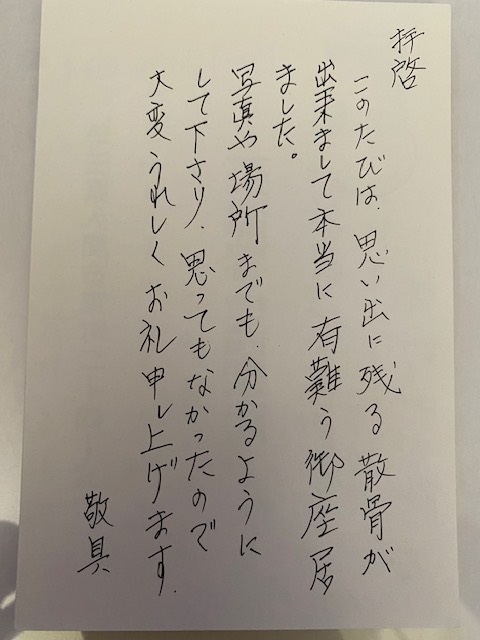 拝啓
このたびは、思い出に残る散骨が
出来まして本当に有難う御座居
ました。
写真や場所までも、分かるように
して下さり、思ってもなかったので
大変うれしくお礼申し上げます。
敬具